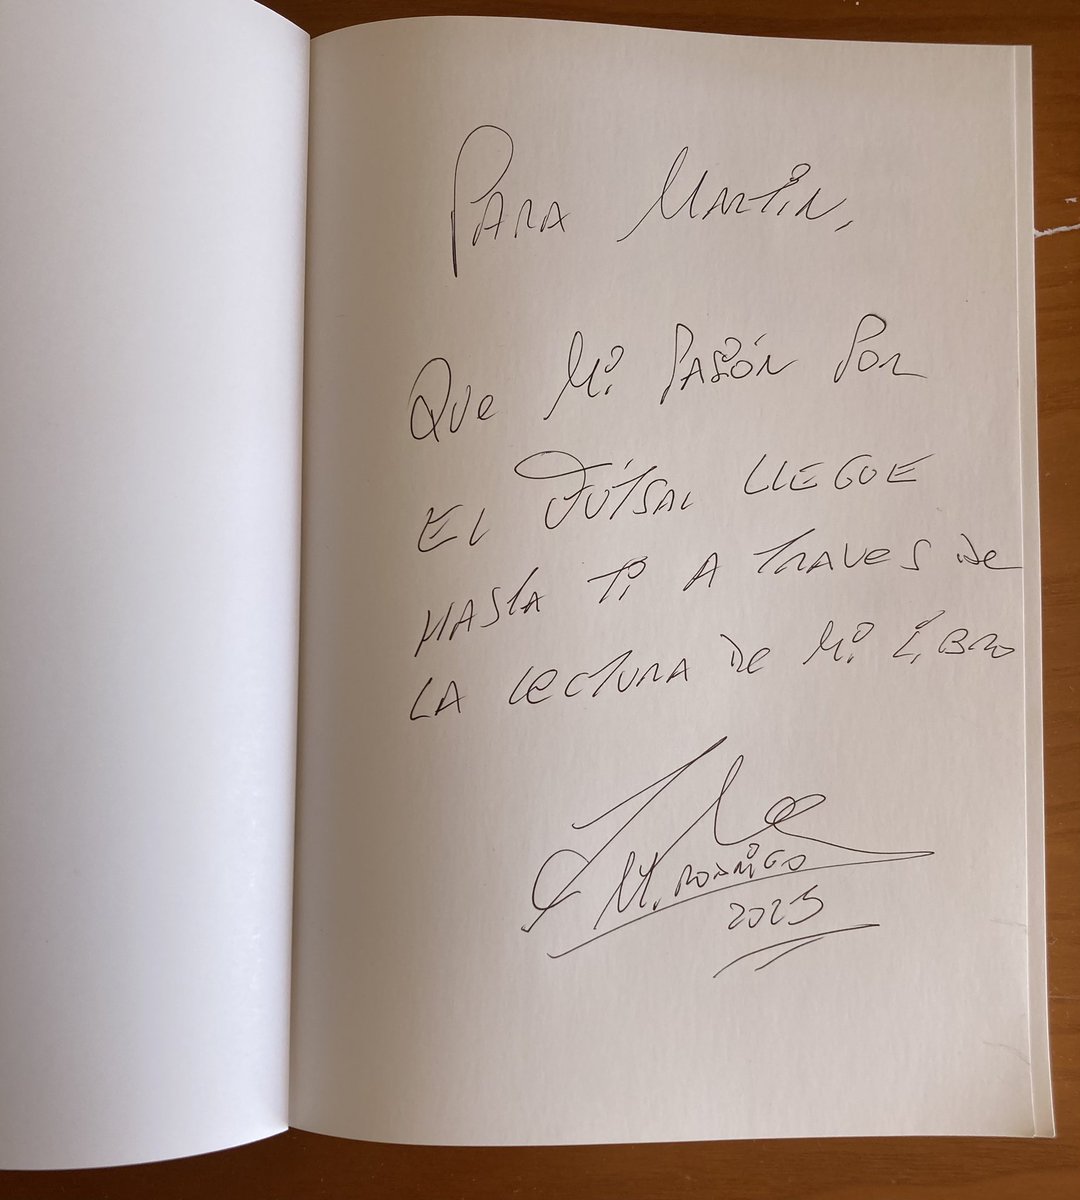 Para Martin,
Que mi pasión por
el fútsal llegue
hasta ti a traves de
la lectura de mi libro
M. Rodrigo
2025